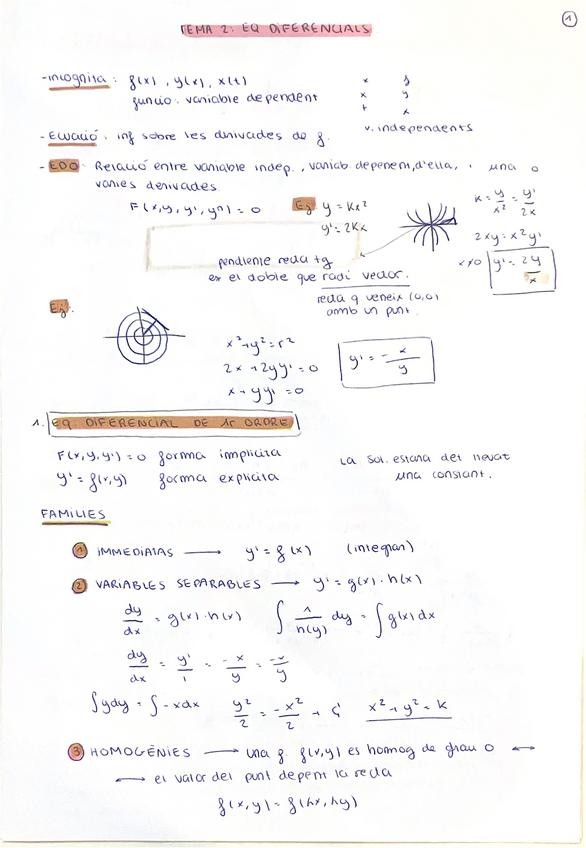 1
TEMA 2: EQ DIFERENCIALS
- Incògnita : f(x) , y(x) , x(t)    x    f
funció : variable dependent    x    y
t    x
v. independents
- EQUACIÓ : inf sobre les derivades de f.
- EDO : Relació entre variable indep., variab depenent, d'ella, i una o
varies derivades
F(x, y, y', yⁿ) = 0
Eg y = Kx²
y' = 2Kx
K = y/x² = y'/2x
2xy = x²y'
x≠0 y' = 2y/x
pendiente recta tg
es el doble que radi vector.
recta q veneix (0,0)
amb un punt.
Eg.
x² + y² = r²
2x + 2yy' = 0
x + yy' = 0
y' = - x/y
1. EQ. DIFERENCIAL DE 1r ORDRE
F(x, y, y') = 0 forma implícita
y' = f(x, y) forma explícita
La sol. estarà det llevat
una constant.
FAMÍLIES
1 IMMEDIATAS ⟶ y' = f(x) (integran)
2 VARIABLES SEPARABLES ⟶ y' = g(x) · h(x)
dy/dx = g(x) · h(x)    ∫ 1/h(y) dy = ∫ g(x) dx
dy/dx = y'/1 = -x/y = -x/y
∫ y dy = ∫ -x dx    y²/2 = -x²/2 + C    x² + y² = K
3 HOMOGÈNIES ⟶ Una f. f(x, y) es homog de grau 0 ⟷
⟷ el valor del punt depen la recta
f(x, y) = f(λx, λy)